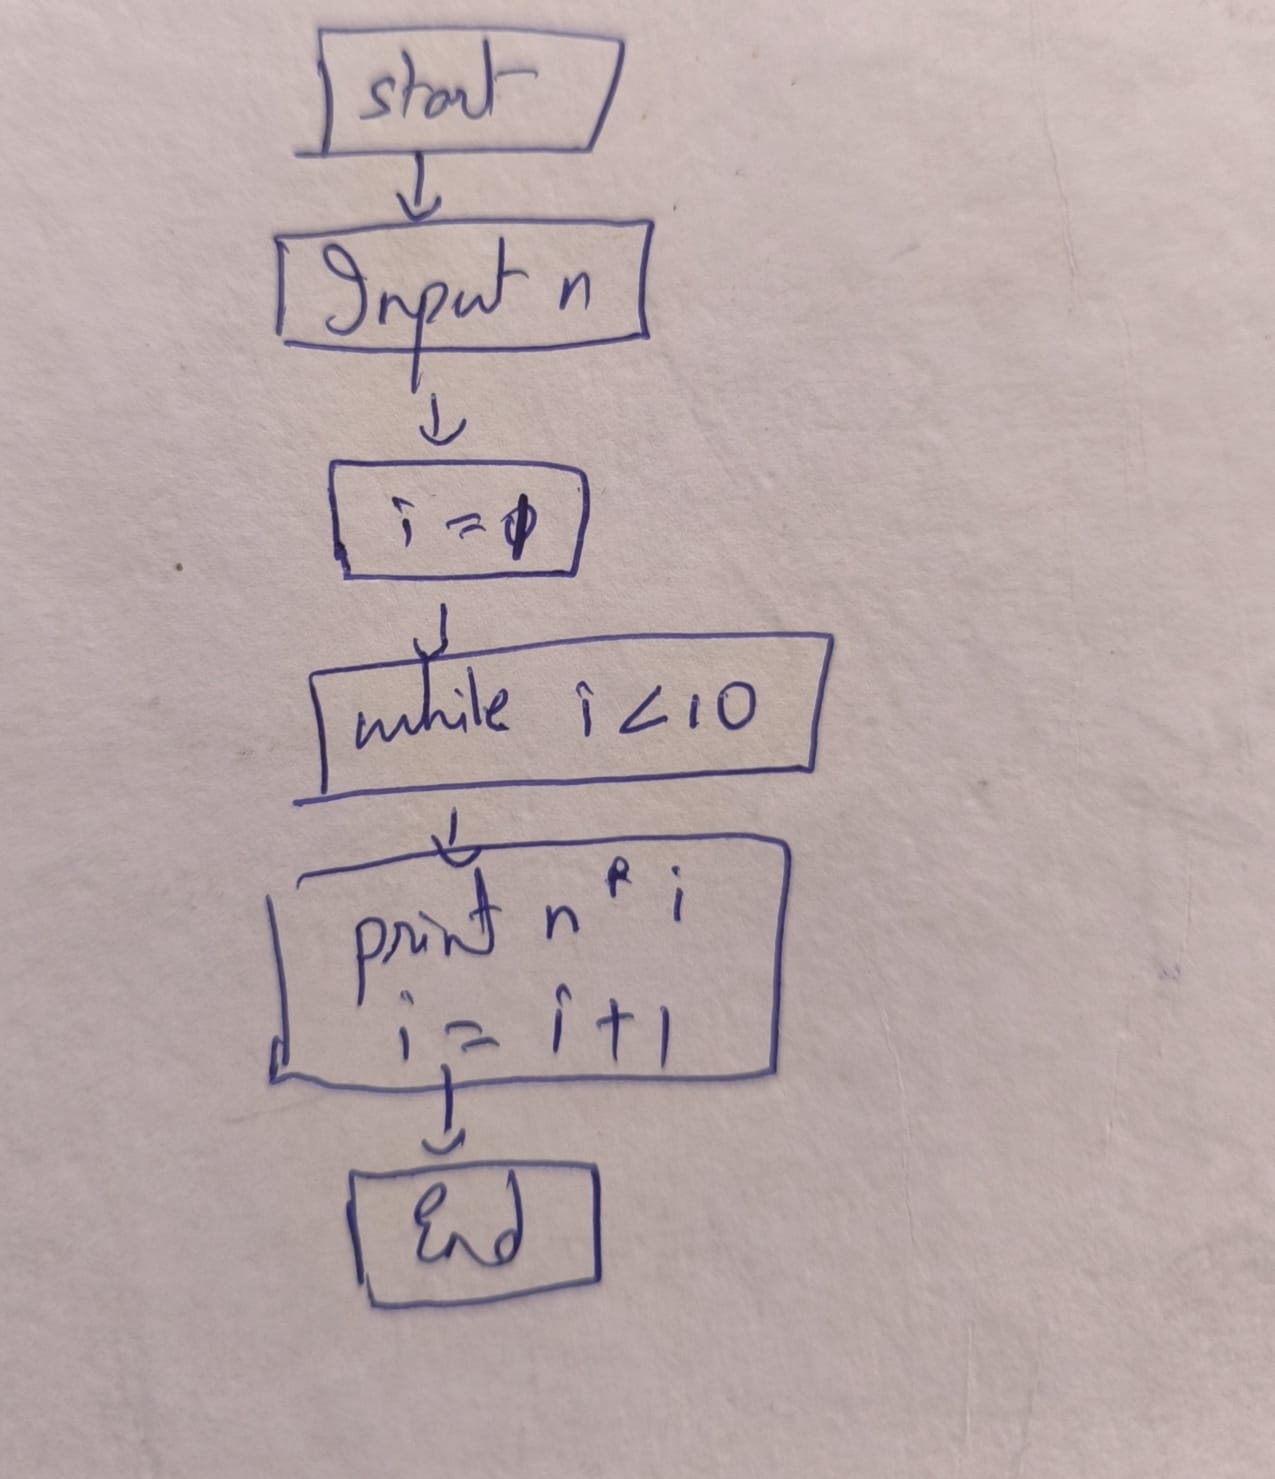 start
Input n
i =
while i < 10
print n * i
i = i + 1
End